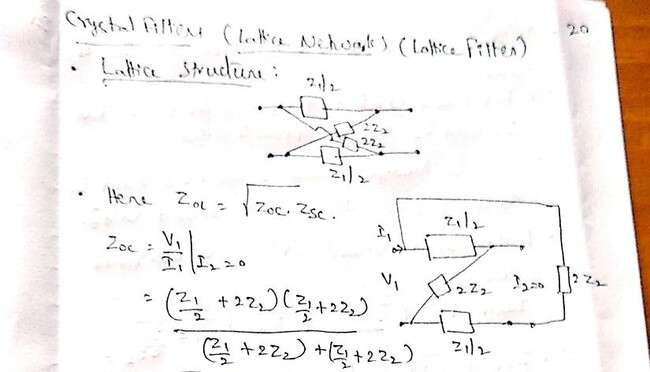 Crystal Filters (Lattice Network) (Lattice Filter)
20
• Lattice Structure :
Z₁/2
2Z₂
2Z₂
Z₁/2
• Here Z₀L = √(Z₀c · Zsc).
Z₀c = V₁/I₁ | I₂=0
= (Z₁/2 + 2Z₂)(Z₁/2 + 2Z₂)
(Z₁/2 + 2Z₂) + (Z₁/2 + 2Z₂)
I₁
Z₁/2
V₁
2Z₂
I₂=0
2Z₂
Z₁/2